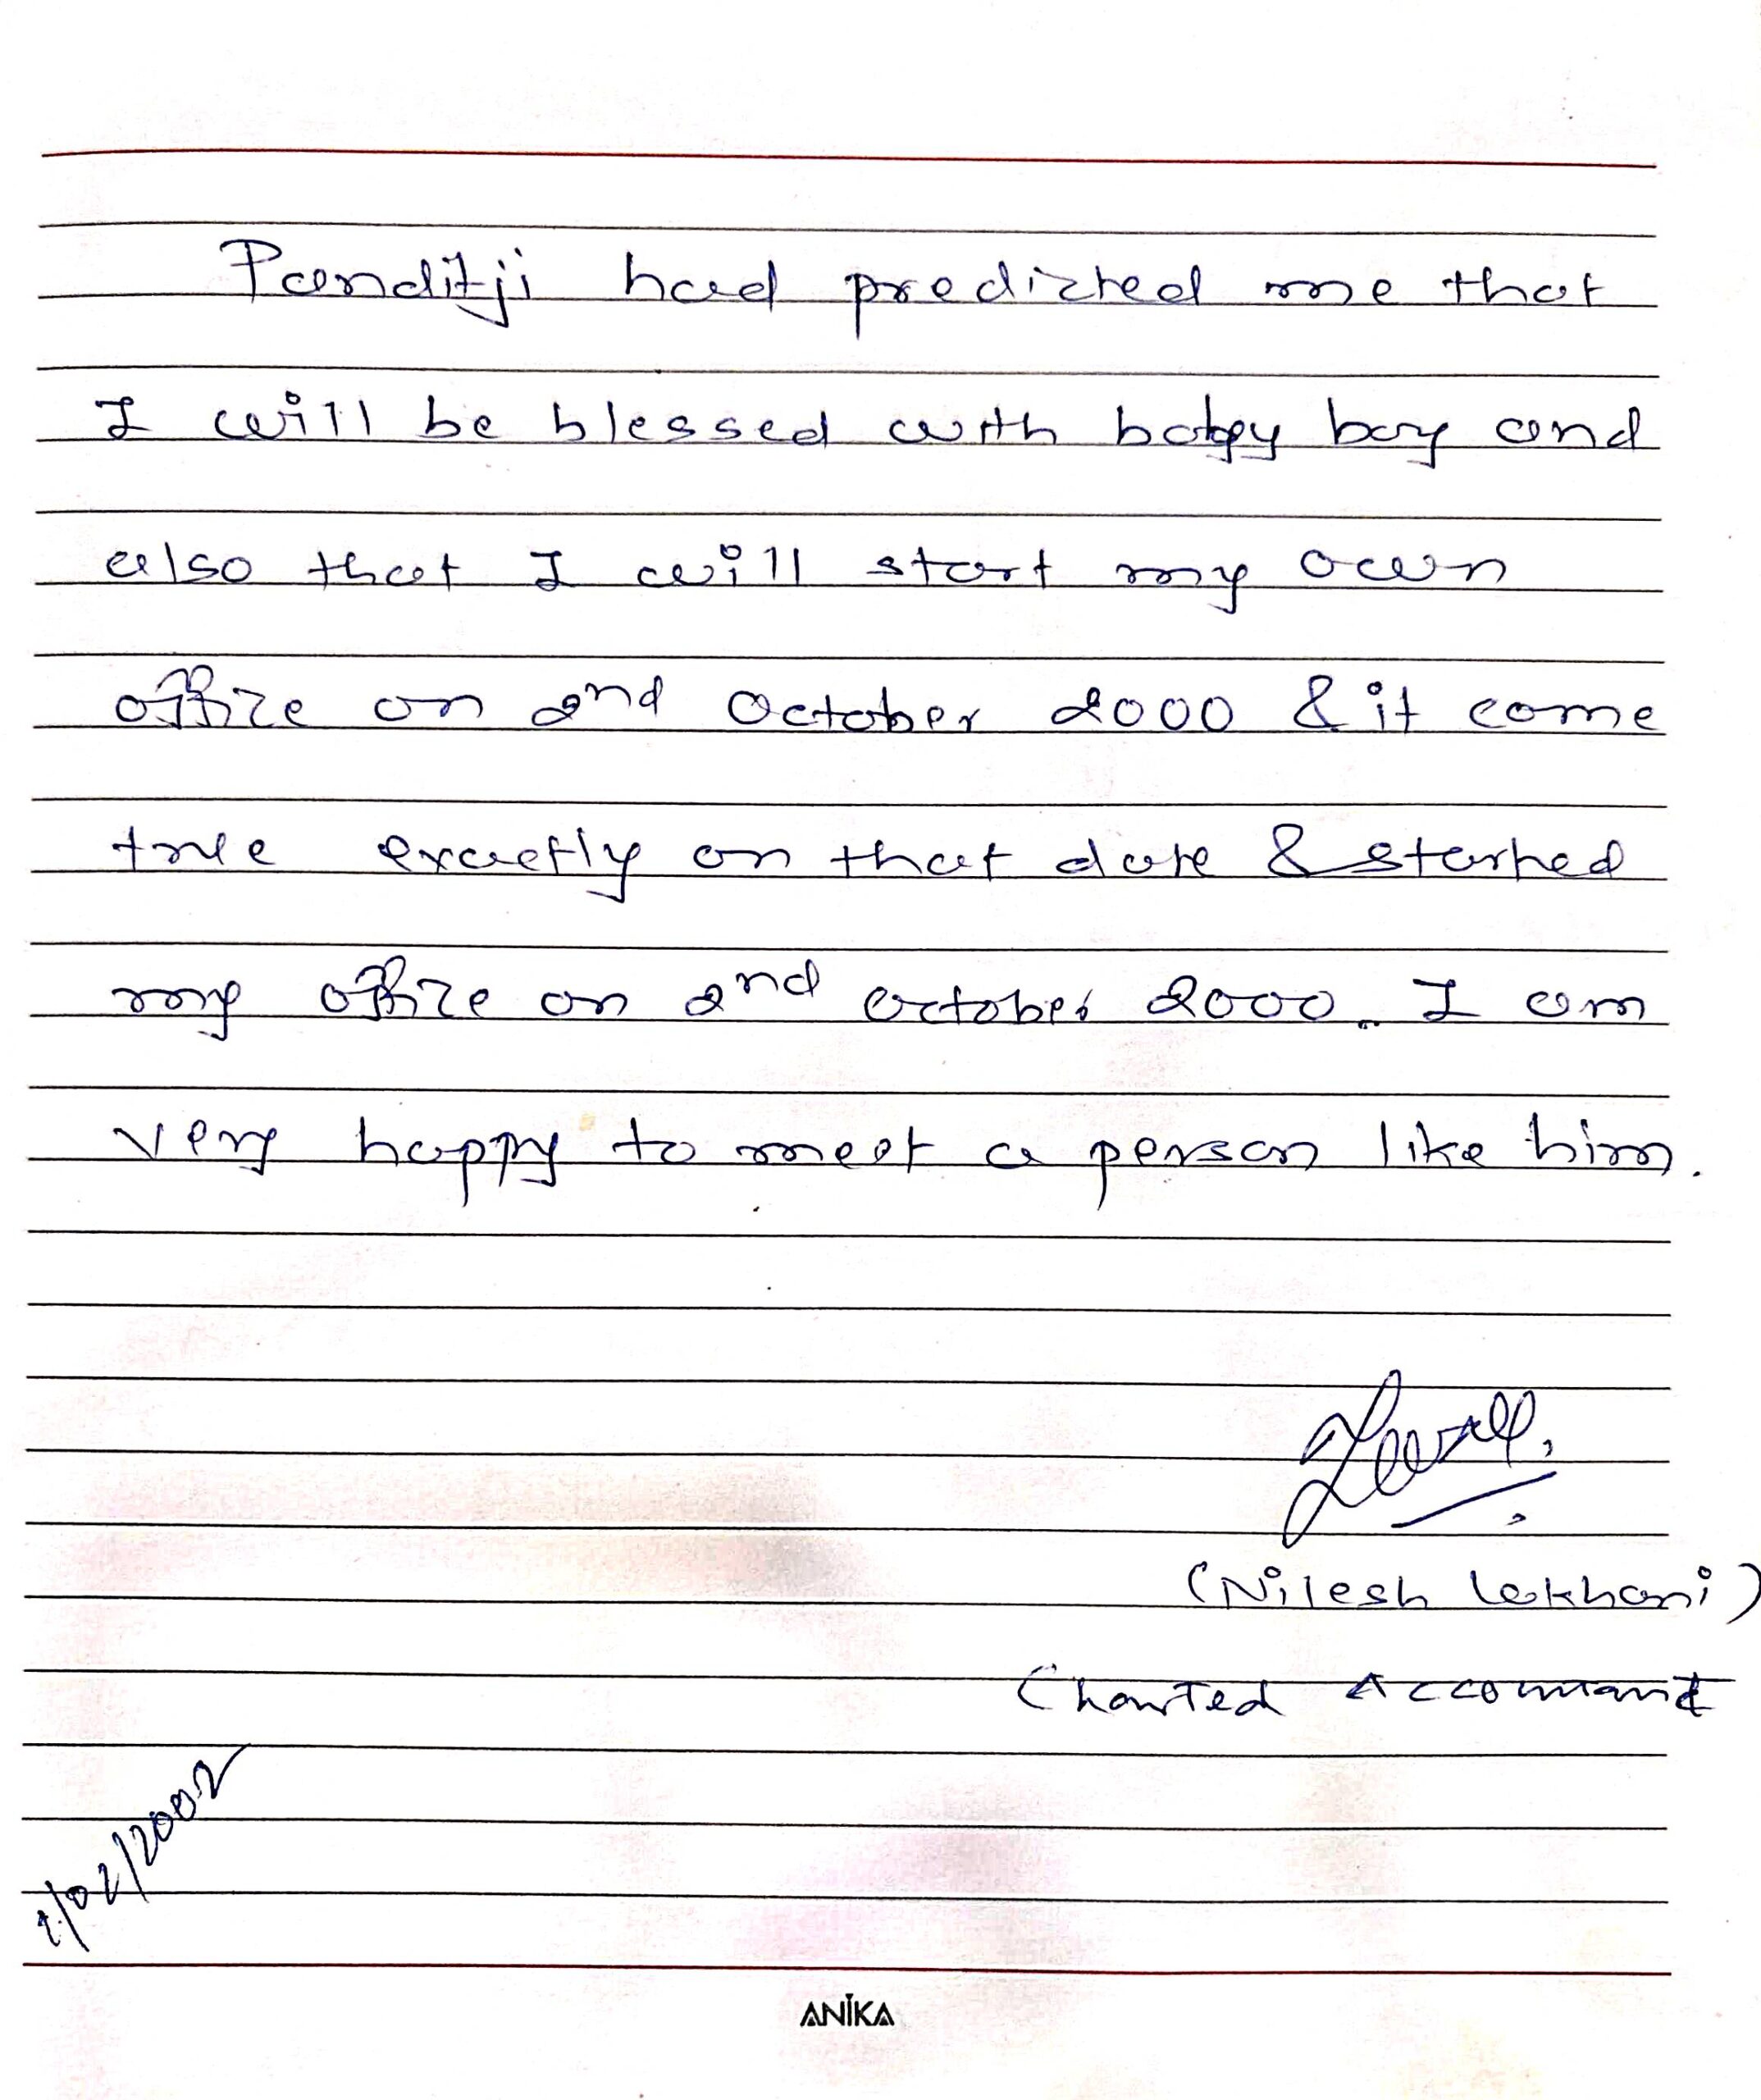 Panditji had predicted me that
I will be blessed with baby boy and
also that I will start my own
office on 2nd October 2000 & it come
true exactly on that date & started
my office on 2nd October 2000. I am
very happy to meet a person like him.
(Nilesh Lakhani)
Charted Accountant
/02/2002
ANIKA